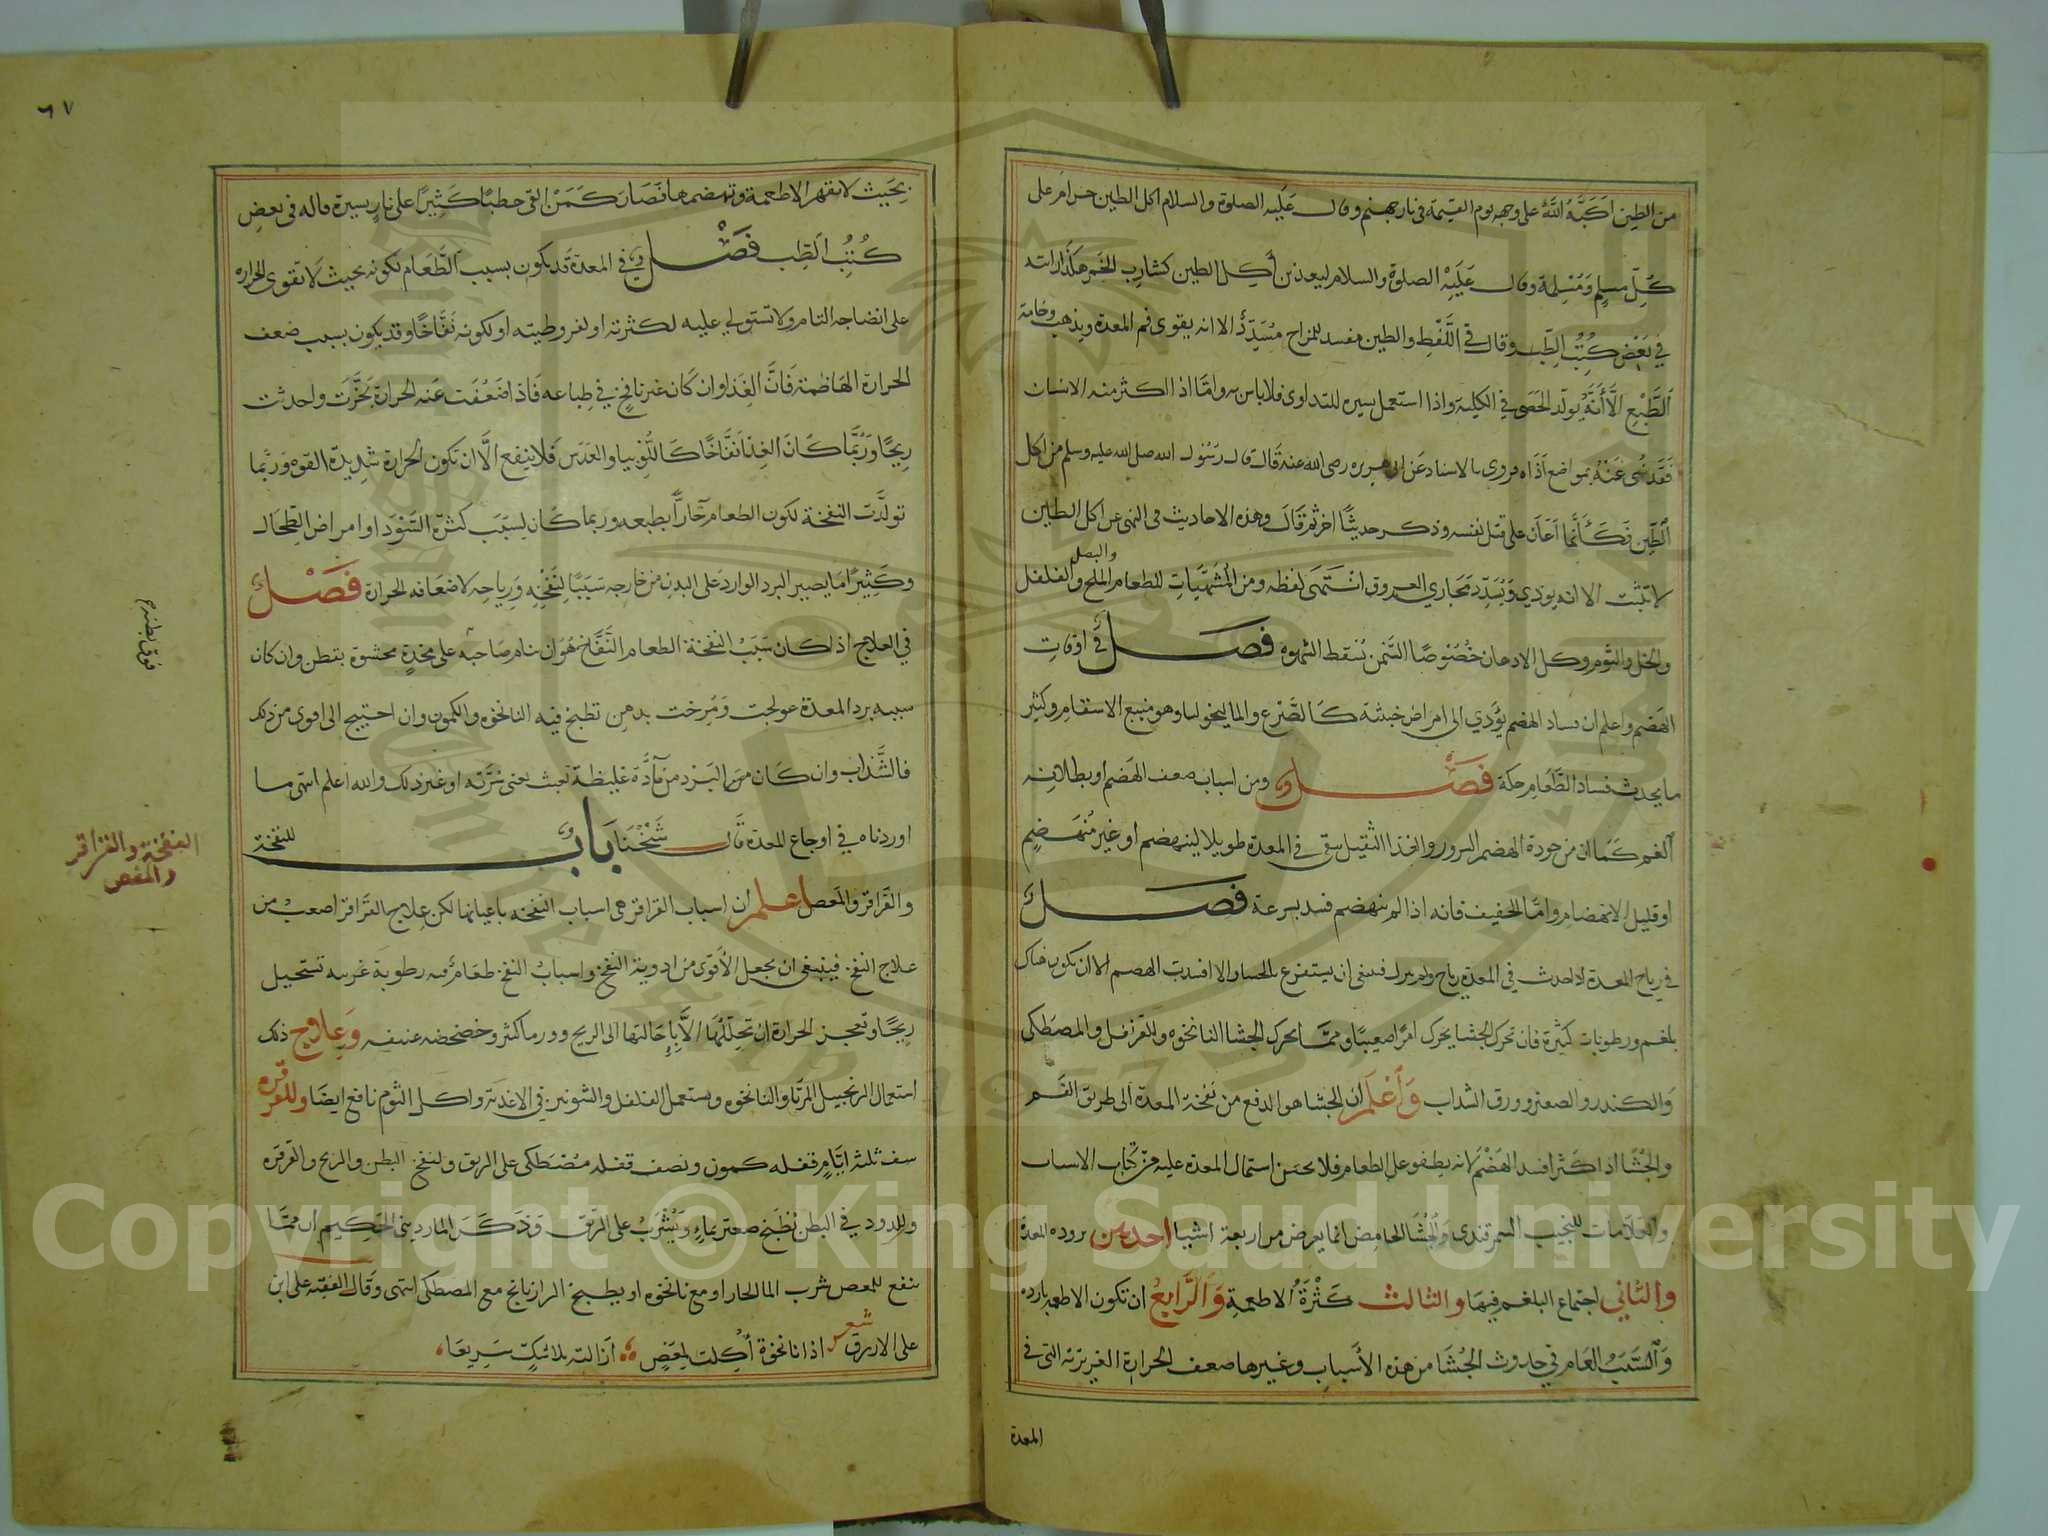 من الطين اكبّه الله على وجهه يوم القيمة فى نار جهنم وقال عليه الصلوة والسلام اكل الطين حرام على
كل مسلم ومسلمة وقال عليه الصلوة والسلام ليعذبن أكل الطين كشارب الخمر هكذا رايته
في بعض كتب الطب وقال في اللقط والطين مفسد للمزاج مسدّد الا انه يقوى فم المعدة ويذهب وخامة
الطبع الا أنه يولد الحصى في الكلية واذا استعمل يسيره للتداوى فلا باس به واما اذا اكثر منه الانسان
فقد نهى عنه بمواضع اذاه فروى بالاسناد عن ابى هريره رضى الله عنه قال قال رسول الله صلى الله عليه وسلم من اكل
الطين فكأنما أعان على قتل نفسه وذكر حديثا اخر ثم قال وهذه الاحاديث فى النهى عن اكل الطين
لا تثبت الا انه يوذي ويسدد مجاري العروق انتهى لفظه ومن المشهيات للطعام الملح والبصل والفلفل
والخل والثوم وكل الادهان خصوصا السمن يسقط الشهوه فصل في اوقات
الهضم واعلم ان فساد الهضم يؤدي الى امراض خبيثة كالصرع والماليخوليا وهو منبع الاسقام وكثير
ما يحدث فساد الطعام حكة فصل ومن اسباب ضعف الهضم او بطلانه
الغم كما ان من جودة الهضم السرور والغذا الثقيل يبقى في المعدة طويلا لينهضم او غير منهضم
او قليل الانهضام واما الخفيف فانه اذا لم ينهضم فسد بسرعة فصل
في رياح المعدة اذا حدث في المعدة رياح فينبغى ان يستفرغ بالجشا والا افسدت الهضم الا ان يكون هناك
بلغم ورطوبات كثيرة فان تحرك الجشا يحرك امرا صعبا ومما يحرك الجشا النانخوه والقرنفل والمصطكى
والكندر والصعتر وورق السداب واعلم ان الجشا هو الدفع من نفخة المعدة الى طريق الفم
والجشا اذا كثر افسد الهضم لانه يطفو على الطعام فلا يحسن اشتمال المعدة عليه من كتاب الاسباب
والعلامات للنجيب السمرقندى والجشا الحامض انما يعرض من اربعة اشيا احدهن بروده المعدة
والثاني اجتماع البلغم فيها والثالث كثرة الاطعمة والرابع ان تكون الاطعمه بارده
والسبب العام في حدوث الجشا من هذه الأسباب وغيرها ضعف الحرارة الغريزية التى فى
المعدة
٦٧
بحيث لا تقهر الاطعمة وتهضمها فصار كمن القى حطبا كثيرا على نار يسيرة قاله فى بعض
كتب الطب فصل في المعدة قد يكون بسبب الطعام لكونه بحيث لا تقوى الحراره
على انضاجه التام ولا تستولي عليه لكثرته او لفرو طيته او لكونه نفاخا وقد يكون بسبب ضعف
الحرارة الهاضمة فان الغذا وان كان غير نافخ في طباعه فاذا ضعفت عنه الحرارة بخرت واحدثت
ريحا وربما كان الغذا نفاخا كاللوبيا والعدس فلا ينفع الا ان تكون الحرارة شديدة القوه وربما
تولدت النفخة لكون الطعام حارا بطبعه وربما كان لسبب كثرة السود او امراض الطحال
وكثيرا ما يصير البرد الوارد على البدن من خارجه سببا لنفخه ورياحه لاضعافه الحرارة فصل
في العلاج اذا كان سبب النفخة الطعام النفاخ هو ان ينام صاحبه على مخدة محشوة بقطن وان كان
فوق بطنه
سببه برد المعدة عولجت ومرخت بدهن تطبخ فيه النانخوه والكمون وان احتيج الى اقوى من ذلك
فالسذاب وان كان من البرد من مادة غليظة يعنى شربه او غير ذلك والله اعلم انتهى ما
اوردناه في اوجاع المعدة قال شيخنا باب للنفخة
النفخة والقراقر
والمغص
والقراقر والمغص اعلم ان اسباب القراقر هى اسباب النفخه باعيانها لكن علاج القراقر اصعب من
علاج النفخ فينبغى ان يجعل الأقوى من ادوية النفخ واسباب النفخ طعام فيه رطوبة غريبه تستحيل
ريحا وتعجز الحرارة ان تحللها الا باحالتها الى الريح وورما كثر وخضخضه عنيفه وعلاج ذلك
استعمال الزنجبيل المربا والنانخوه ويستعمل الفلفل والشونيز في الاغذية واكل الثوم نافع ايضا وللقرقره
سف ثلثة ايام قفله كمون ونصف قفله مصطكى على الريق ولنفخ البطن والريح والقرقره
والدود في البطن يطبخ صعتر بماء ويشرب على الريق وذكر المارديني الحكيم ان مما
ينفع للمغص شرب الما الحار او مع نانخوه او يطبخ الرازيانج مع المصطكى انتهى وقال الفقيه على ابن
على الازرق شعر اذا نانخوة أكلت لمغص ازالته بلا شك سريعا
Copyright © King Saud University